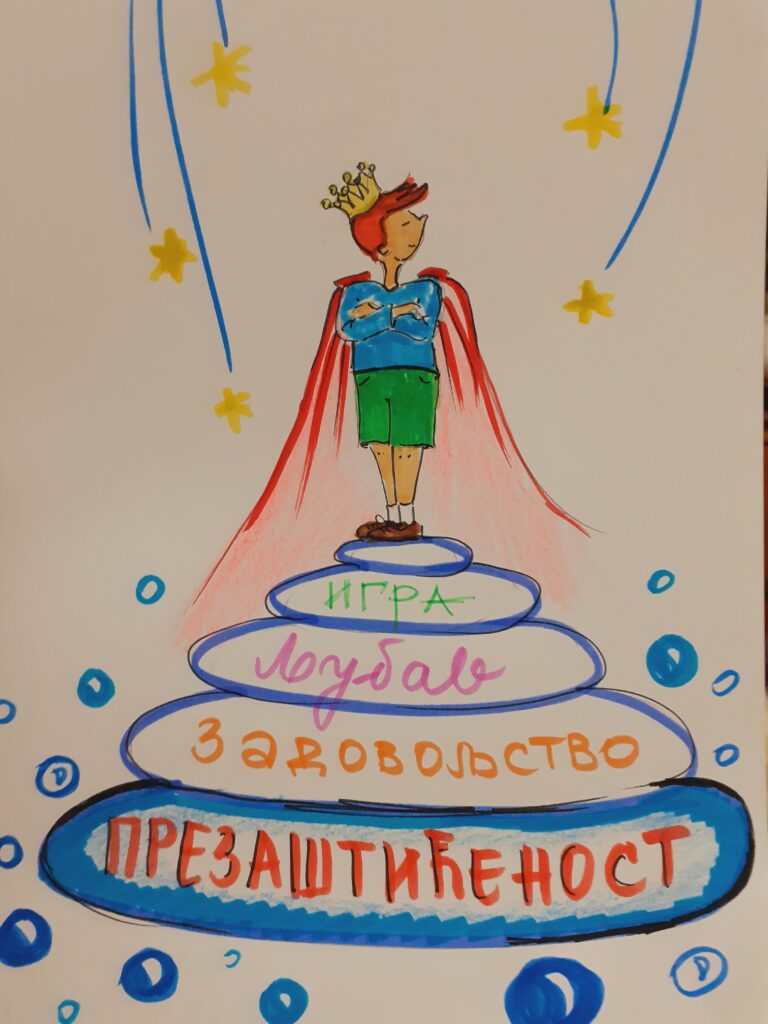 ИГРА
Љубав
ЗАДОВОЉСТВО
ПРЕЗАШТИЋЕНОСТ